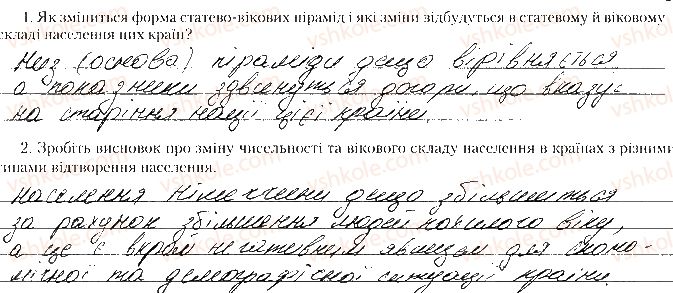 1. Як зміниться форма статево-вікових пірамід і які зміни відбудуться в статевому й віковому
складі населення цих країн?
Низ (основа) піраміди дещо вірівняється
а показники здвигнуться догори, що вказує
на старіння нації цієї країни.
2. Зробіть висновок про зміну чисельності та вікового складу населення в країнах з різними
типами відтворення населення.
Населення Німеччини дещо збільшиться
за рахунок збільшення людей похилого віку,
а це є вкрай негативним явищем для еконо-
мічної та демографічної ситуації країни.